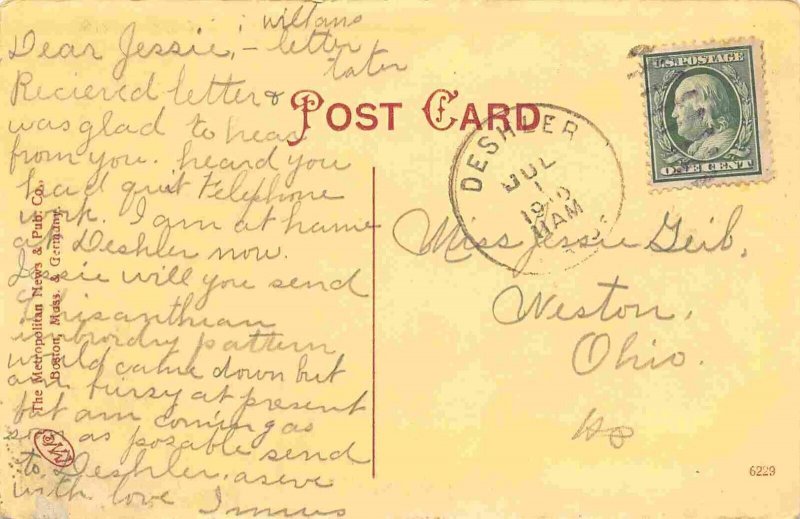 Dear Jessie, – letter
later
Recieved letter &
was glad to hear
from you. heard you
had quit telephone
work. I am at home
at Deshler now.
Jessie will you send
pattern
would came down but
at present
but am coming as
soon as pozable send
to Deshler.
with love
POST CARD
U.S. POSTAGE
ONE CENT
DESHLER
JUL
1
1910
AM
Miss Jessie Geib,
Weston,
Ohio.
The Metropolitan News & Pub. Co.,
Boston, Mass. & Germany.
6229